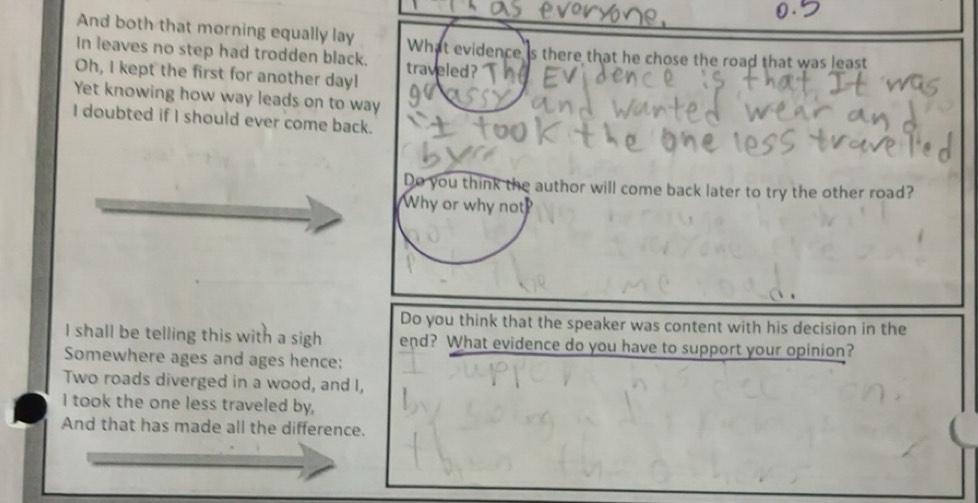 as everyone.
0.5
And both that morning equally lay
In leaves no step had trodden black.
Oh, I kept the first for another day!
Yet knowing how way leads on to way
I doubted if I should ever come back.
What evidence is there that he chose the road that was least
traveled? The Evidence is that It was
grassy and wanted wear and
"I took the one less travelled
by"
Do you think the author will come back later to try the other road?
Why or why not?
not
road.
I shall be telling this with a sigh
Somewhere ages and ages hence:
Two roads diverged in a wood, and I,
I took the one less traveled by,
And that has made all the difference.
Do you think that the speaker was content with his decision in the
end? What evidence do you have to support your opinion?
I support his decision,
by